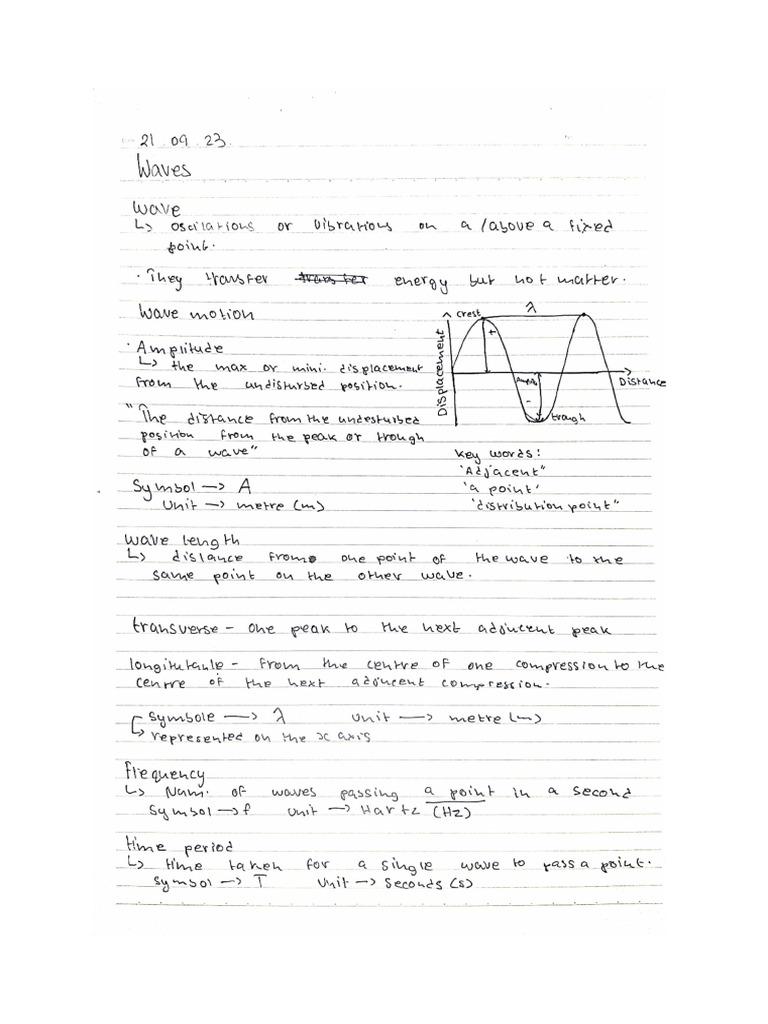 21 . 09 . 23.
Waves
wave
↳ oscilations or vibrations on a /above a fixed
point.
· They transfer energy but not matter.
wave motion
· Amplitude
↳ the max or mini. displacement
from the undisturbed position.
"The distance from the undesturbed
position from the peak or trough
of a wave"
Symbol → A
Unit → metre (m)
crest
λ
Displacement
+
Amp
-
Distance
trough
key words:
'Adjacent"
'a point'
'distribution point"
wave length
↳ distance from one point of the wave to the
same point on the other wave.
transverse - one peak to the next adjucent peak
longitutanle - from the centre of one compression to the
centre of the next adjucent compression.
Symbole → λ unit → metre (m)
↳ represented on the x axis
frequency
↳ Num. of waves passing a point in a second
Symbol → f unit → Hartz (Hz)
time period
↳ time taken for a single wave to pass a point.
Symbol → T Unit → Seconds (s)